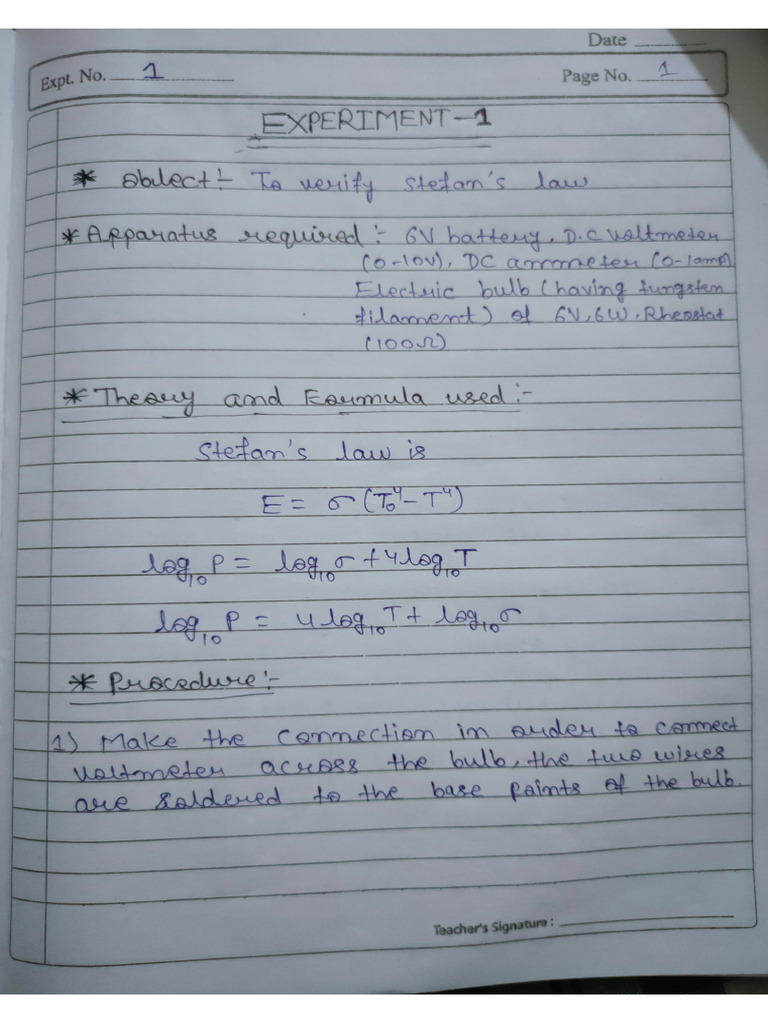 Date
Expt. No. 1
Page No. 1
EXPERIMENT-1
* Object:- To verify Stefan's law
* Apparatus required:- 6V battery, D.C voltmeter
(0-10V), DC ammeter (0-1amp)
Electric bulb (having tungsten
filament) of 6V, 6W, Rheostat
(100Ω)
* Theory and Formula used:-
Stefan's law is
E = σ (T₀⁴ - T⁴)
log₁₀ P = log₁₀ σ + 4 log₁₀ T
log₁₀ P = 4 log₁₀ T + log₁₀ σ
* Procedure:-
1) Make the connection in order to connect
voltmeter across the bulb, the two wires
are soldered to the base points of the bulb.
Teacher's Signature :